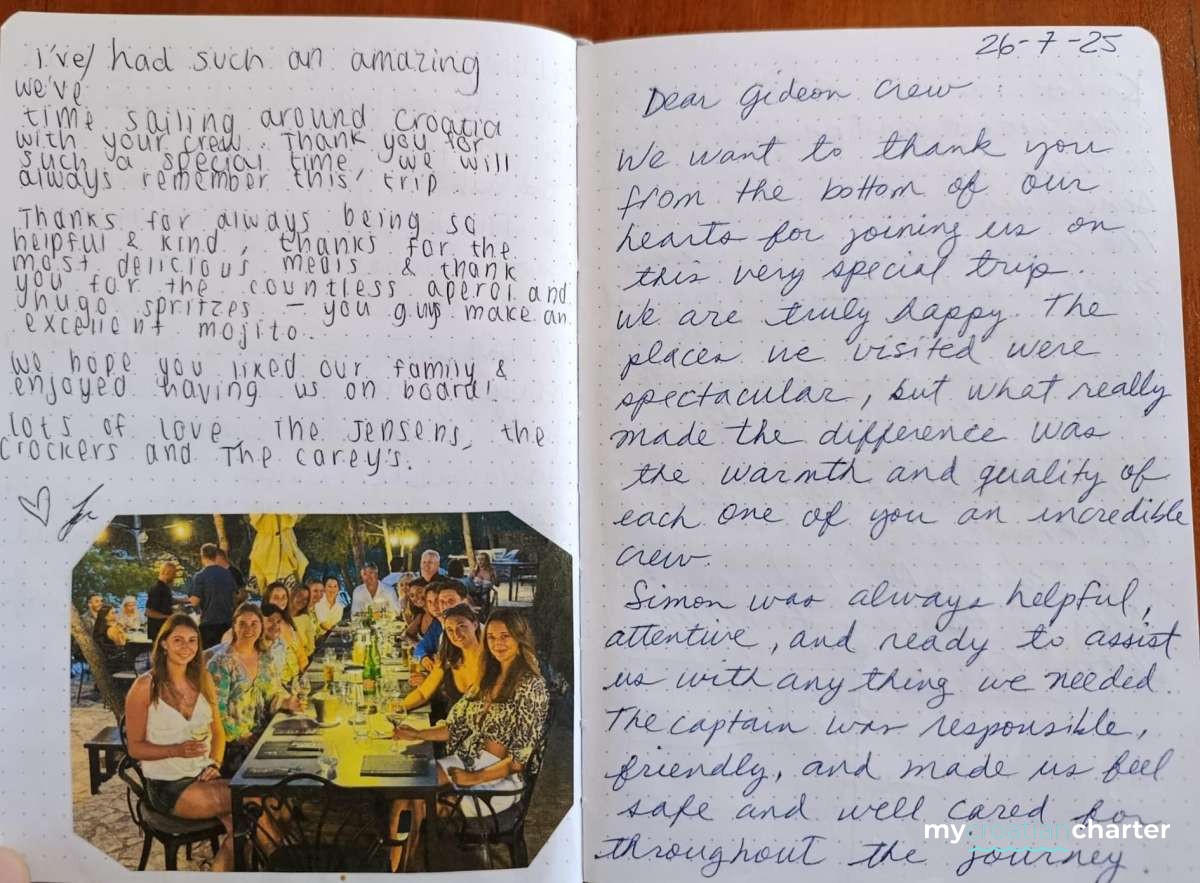 i've/ had such an amazing
we've
time sailing around Croatia
with your crew. Thank you for
such a special time, we will
always remember this trip.
Thanks for always being so
helpful & kind, thanks for the
most delicious meals & thank
you for the countless aperol and
hugo spritzes - you guys make an
excellent mojito.
We hope you liked our family &
enjoyed having us on board!
lots of love, The Jensens, the
Crockers and The Carey's.
26-7-25
Dear Gideon Crew
We want to thank you
from the bottom of our
hearts for joining us on
this very special trip.
We are truly happy. The
places we visited were
spectacular, but what really
made the difference was
the warmth and quality of
each one of you an incredible
crew.
Simon was always helpful,
attentive, and ready to assist
us with any thing we needed.
The captain was responsible,
friendly, and made us feel
safe and well cared for
throughout the journey
mycroatiancharter